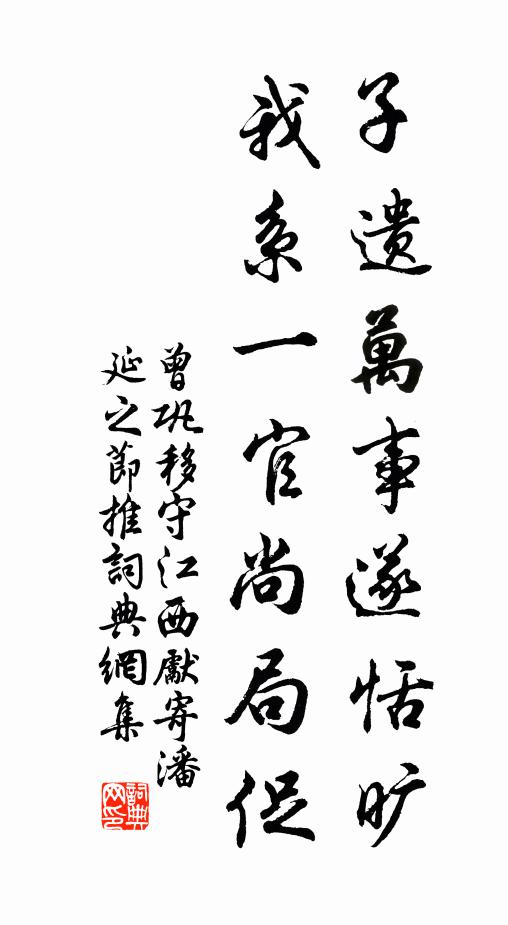 子遺萬事遂恬旷
我系一官尚局促
曾巩移守江西獻寄潘
延之節推詞典網集
詞典
网印